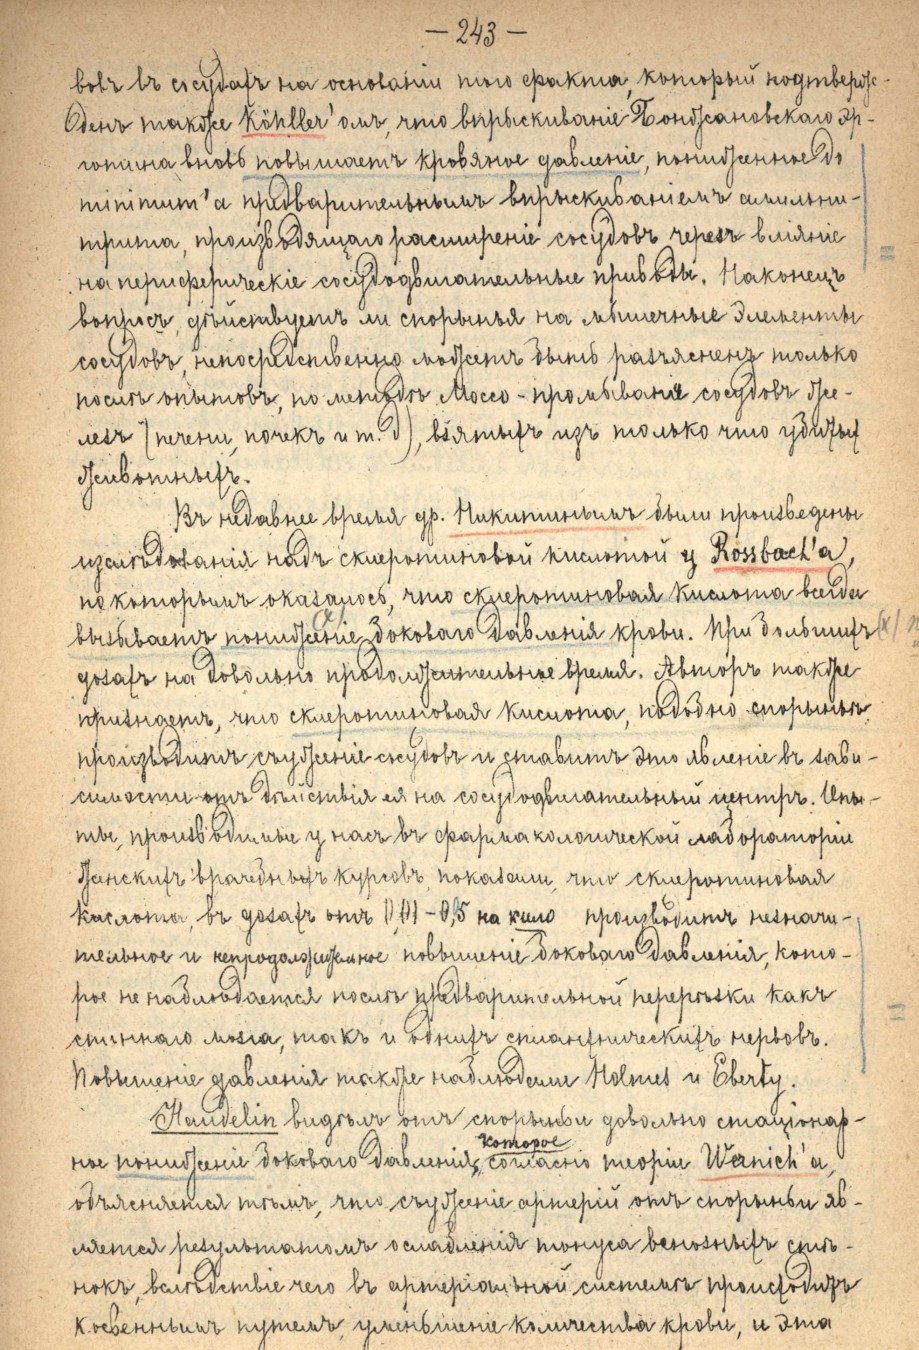 — 243 —
вовъ въ сосудахъ на основаніи того факта, который подтверж-
денъ также Köhller'омъ, что впрыскиваніе Бонжановскаго эр-
готина вновь повышаетъ кровяное давленіе, пониженное до
minimum'а предварительнымъ впрыскиваніемъ амильни-
трита, производящаго расширеніе сосудовъ черезъ вліяніе
на периферическіе сосудодвигательные приводы. Наконецъ
вопросъ, дѣйствуетъ ли спорынья на мышечные элементы
сосудовъ, непосредственно можетъ быть разъясненъ только
послѣ опытовъ, по методѣ Моссо - промыванія сосудовъ же-
лезъ (печени, почекъ и т. д), взятыхъ изъ только что убитых
животныхъ.
Въ недавнее время др. Никитинымъ были произведены
изслѣдованія надъ склеротиновой кислотой у Rossbach'а,
по которымъ оказалось, что склеротиновая кислота всегда
вызываетъ пониженіе боковаго давленія крови. При большихъ
(х)
(х)
дозахъ на довольно продолжительное время. Авторъ также
признаетъ, что склеротиновая кислота, подобно спорыньѣ,
производитъ съуженіе сосудовъ и ставитъ это явленіе въ зави-
симости отъ дѣйствія ея на сосудодвигательный центръ. Опы-
ты, производимые у насъ въ фармакологической лабораторіи
женскихъ врачебныхъ курсовъ, показали, что склеротиновая
кислота, въ дозахъ отъ 0,01-0,5 на кило производитъ незначи-
тельное и непродолжительное повышеніе боковаго давленія, кото-
рое не наблюдается послѣ предварительной перерѣзки какъ
спиннаго мозга, такъ и однихъ спланхническихъ нервовъ.
Повышеніе давленія также наблюдали Holmes и Eberty.
Haudelin видѣлъ отъ спорыньи довольно стаціонар-
ное пониженіе боковаго давленія, которое согласно теоріи Wernich'а,
объясняется тѣмъ, что съуженіе артерій отъ спорыньи яв-
ляется результатомъ ослабленія тонуса венозныхъ стѣ-
нокъ, вслѣдствіе чего въ артеріальной системѣ происходитъ
косвеннымъ путемъ, уменьшеніе количества крови, и эта